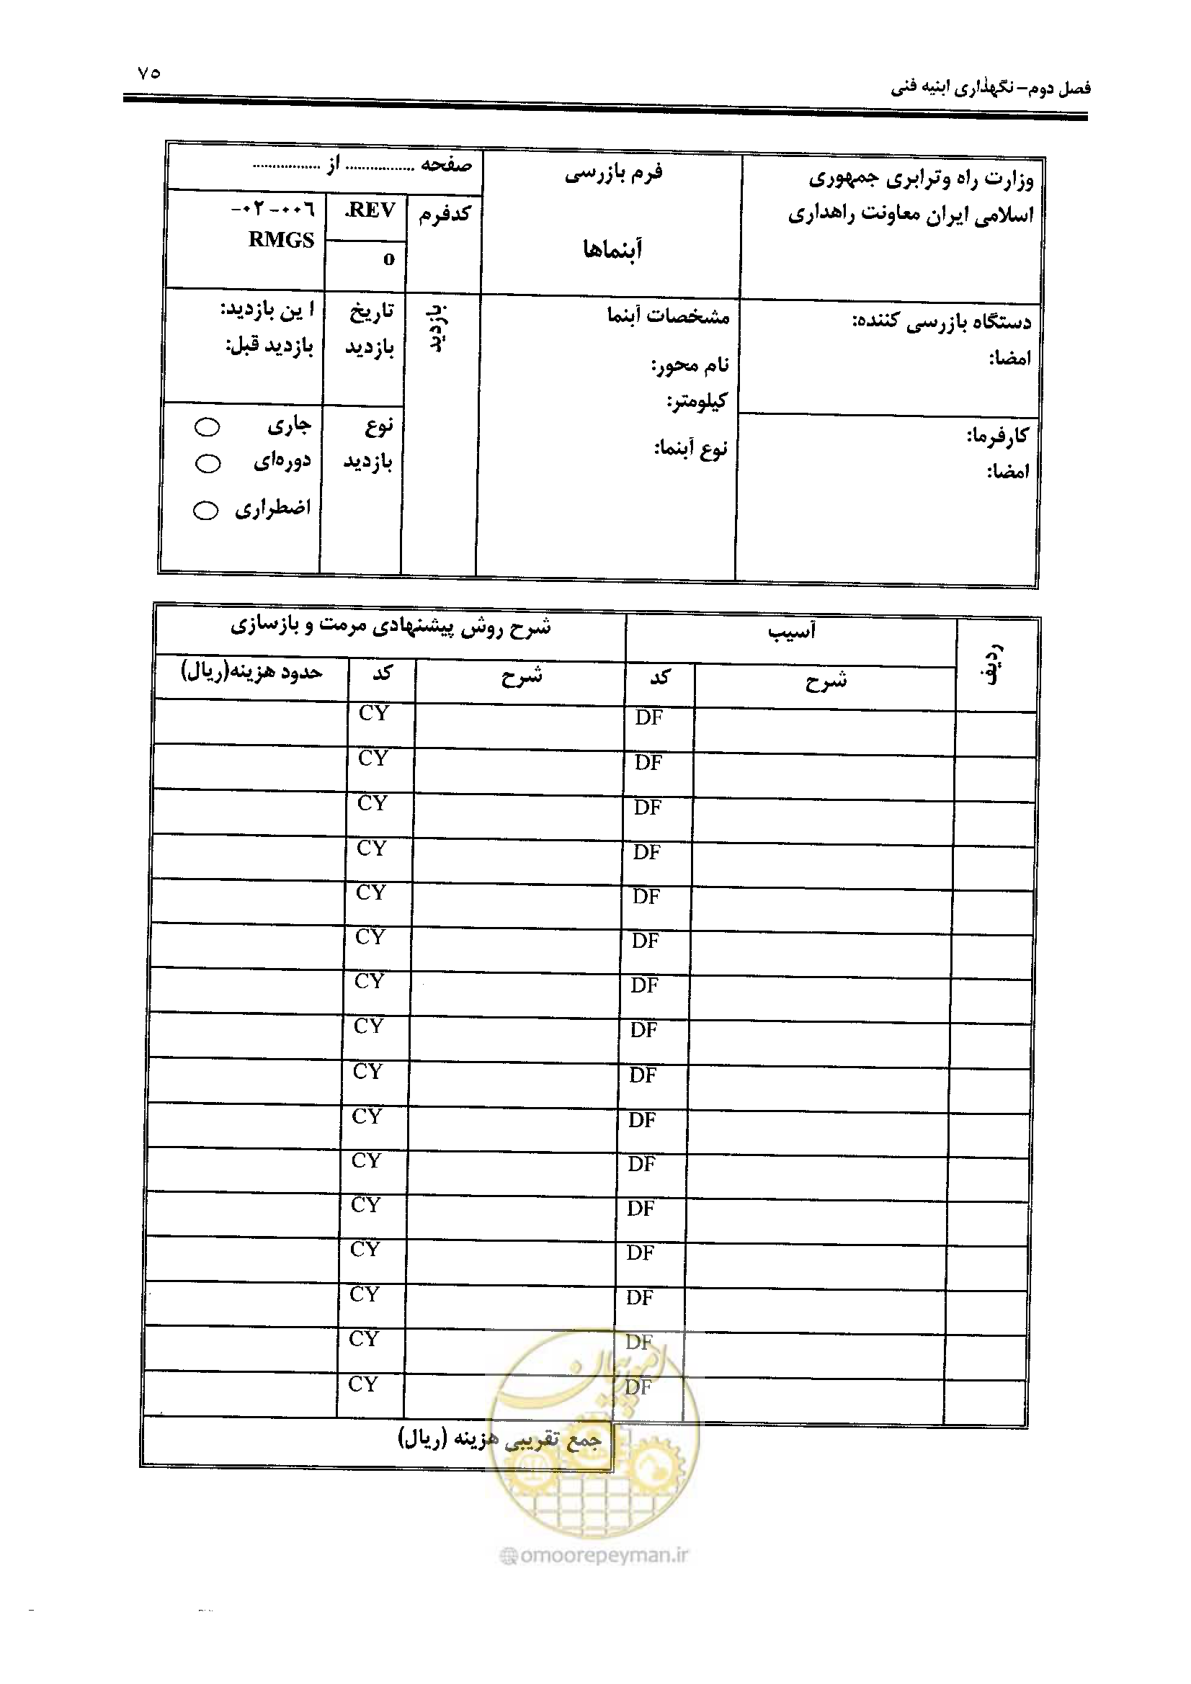 ۷۵
فصل دوم– نگهذاری ابنیه فنی
وزارت راه وترابری جمهوری
اسلامی ایران معاونت راهداری
فرم بازرسی
آبنماها
صفحه ................ از ................
کدفرم
REV.
0
۰۰۶-۰۲-
RMGS
دستگاه بازرسی کننده:
امضا:
کارفرما:
امضا:
مشخصات آبنما
نام محور:
کیلومتر:
نوع آبنما:
بازدید
تاریخ
بازدید
ا ین بازدید:
بازدید قبل:
نوع
بازدید
جاری
دوره‌ای
اضطراری
ردیف
آسیب
شرح روش پیشنهادی مرمت و بازسازی
شرح
کد
شرح
کد
حدود هزینه(ریال)
DF CY
DF CY
DF CY
DF CY
DF CY
DF CY
DF CY
DF CY
DF CY
DF CY
DF CY
DF CY
DF CY
DF CY
DF CY
DF CY
جمع تقریبی هزینه (ریال)
امور پیمان
@omoorepeyman.ir